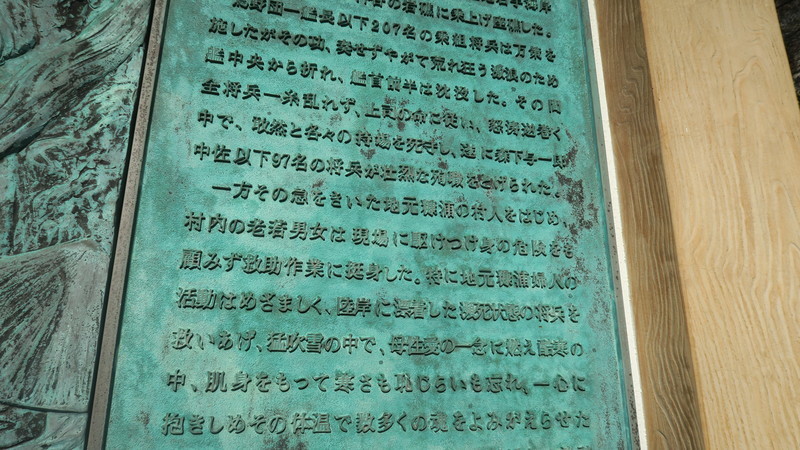 岩礁に乗上げ座礁した。
団一艦長以下207名の乗組将兵は万策を
施したがその功、奏せずやがて荒れ狂う激浪のため
艦中央から折れ、艦首前半は沈没した。その間
全将兵一糸乱れず、上司の命に従い、怒涛逆巻く
中で、敢然と各々の持場を死守し、遂に森下与一郎
中佐以下97名の将兵が壮烈な殉職をとげられた。
一方その急をきいた地元穂浦の村人をはじめ、
村内の老若男女は現場に駆けつけ身の危険をも
顧みず救助作業に挺身した。特に地元穂浦婦人の
活動はめざましく、陸岸に漂着した瀕死状態の将兵を
救いあげ、猛吹雪の中で、母性愛の一念に燃え酷寒の
中、肌身をもって寒さも恥じらいも忘れ、一心に
抱きしめその体温で数多くの魂をよみがえらせた